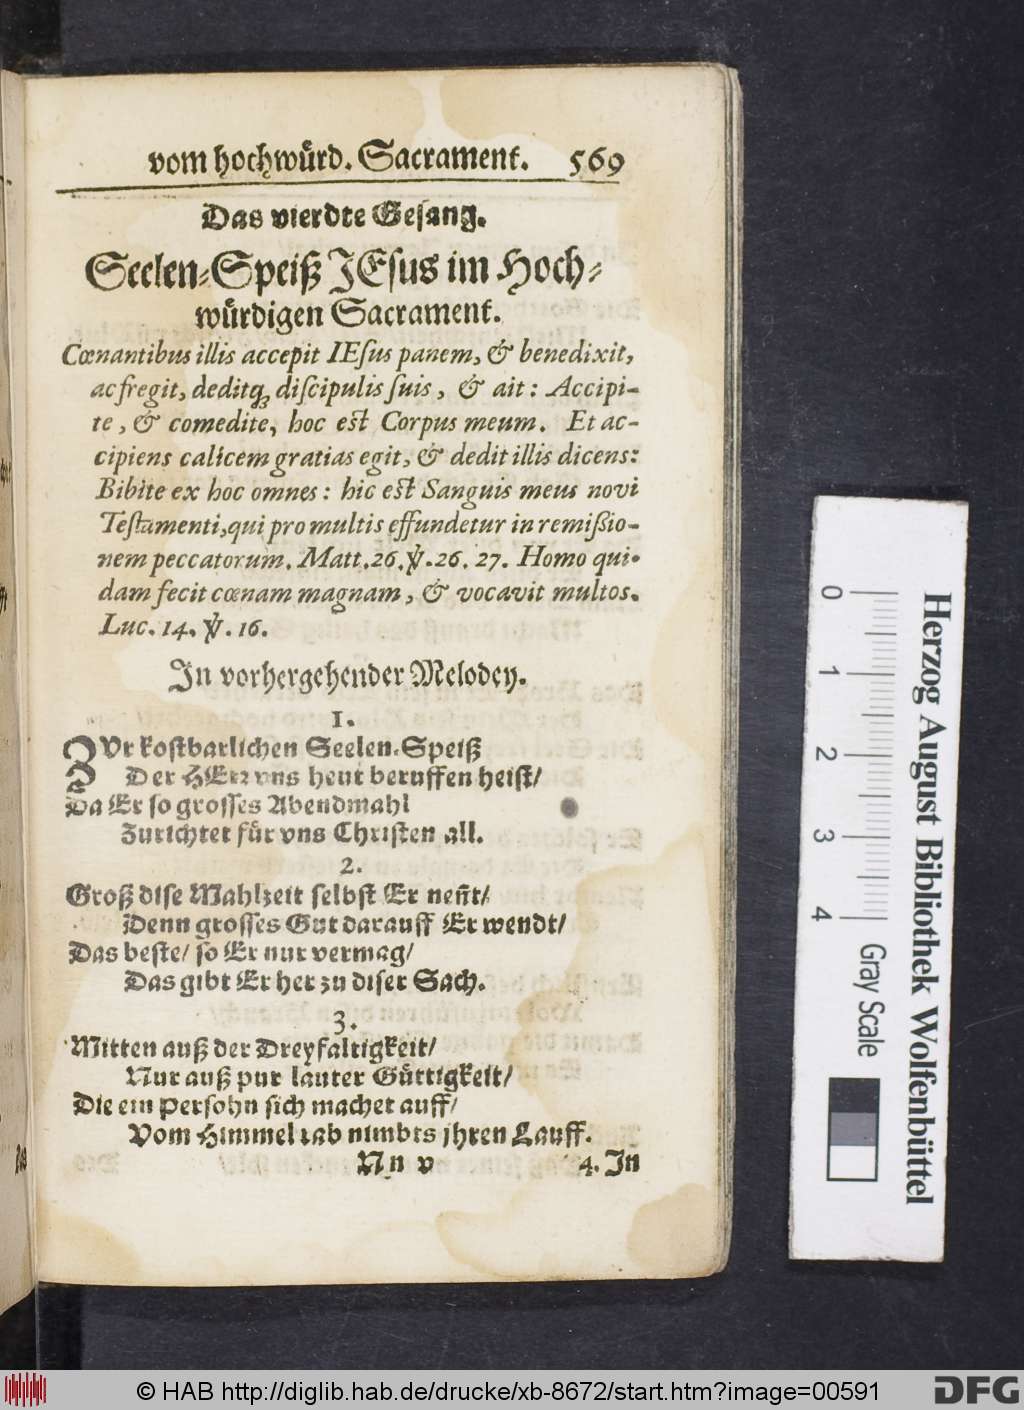 vom hochwürd. Sacrament. 569
Das vierdte Gesang.
Seelen-Speiß JEsus im Hoch-
würdigen Sacrament.
Cœnantibus illis accepit IEsus panem, & benedixit,
ac fregit, deditq; discipulis suis, & ait: Accipi-
te, & comedite, hoc est Corpus meum. Et ac-
cipiens calicem gratias egit, & dedit illis dicens:
Bibite ex hoc omnes: hic est Sanguis meus novi
Testamenti, qui pro multis effundetur in remißio-
nem peccatorum. Matt. 26. ℣. 26. 27. Homo qui-
dam fecit cœnam magnam, & vocavit multos.
Luc. 14. ℣. 16.
In vorhergehender Melodey.
1.
ZUr kostbarlichen Seelen-Speiß
Der HErr vns heut beruffen heist/
Da Er so grosses Abendmahl
Zurichtet für vns Christen all.
2.
Groß dise Mahlzeit selbst Er neñt/
Denn grosses Gut darauff Er wendt/
Das beste/ so Er nur vermag/
Das gibt Er her zu diser Sach.
3.
Mitten auß der Dreyfaltigkeit/
Nur auß pur lauter Güttigkeit/
Die ein Persohn sich machet auff/
Vom Himmel rab nimbts jhren Lauff.
Nn v 4. In
0 1 2 3 4
Gray Scale
Herzog August Bibliothek Wolfenbüttel
© HAB http://diglib.hab.de/drucke/xb-8672/start.htm?image=00591
DFG